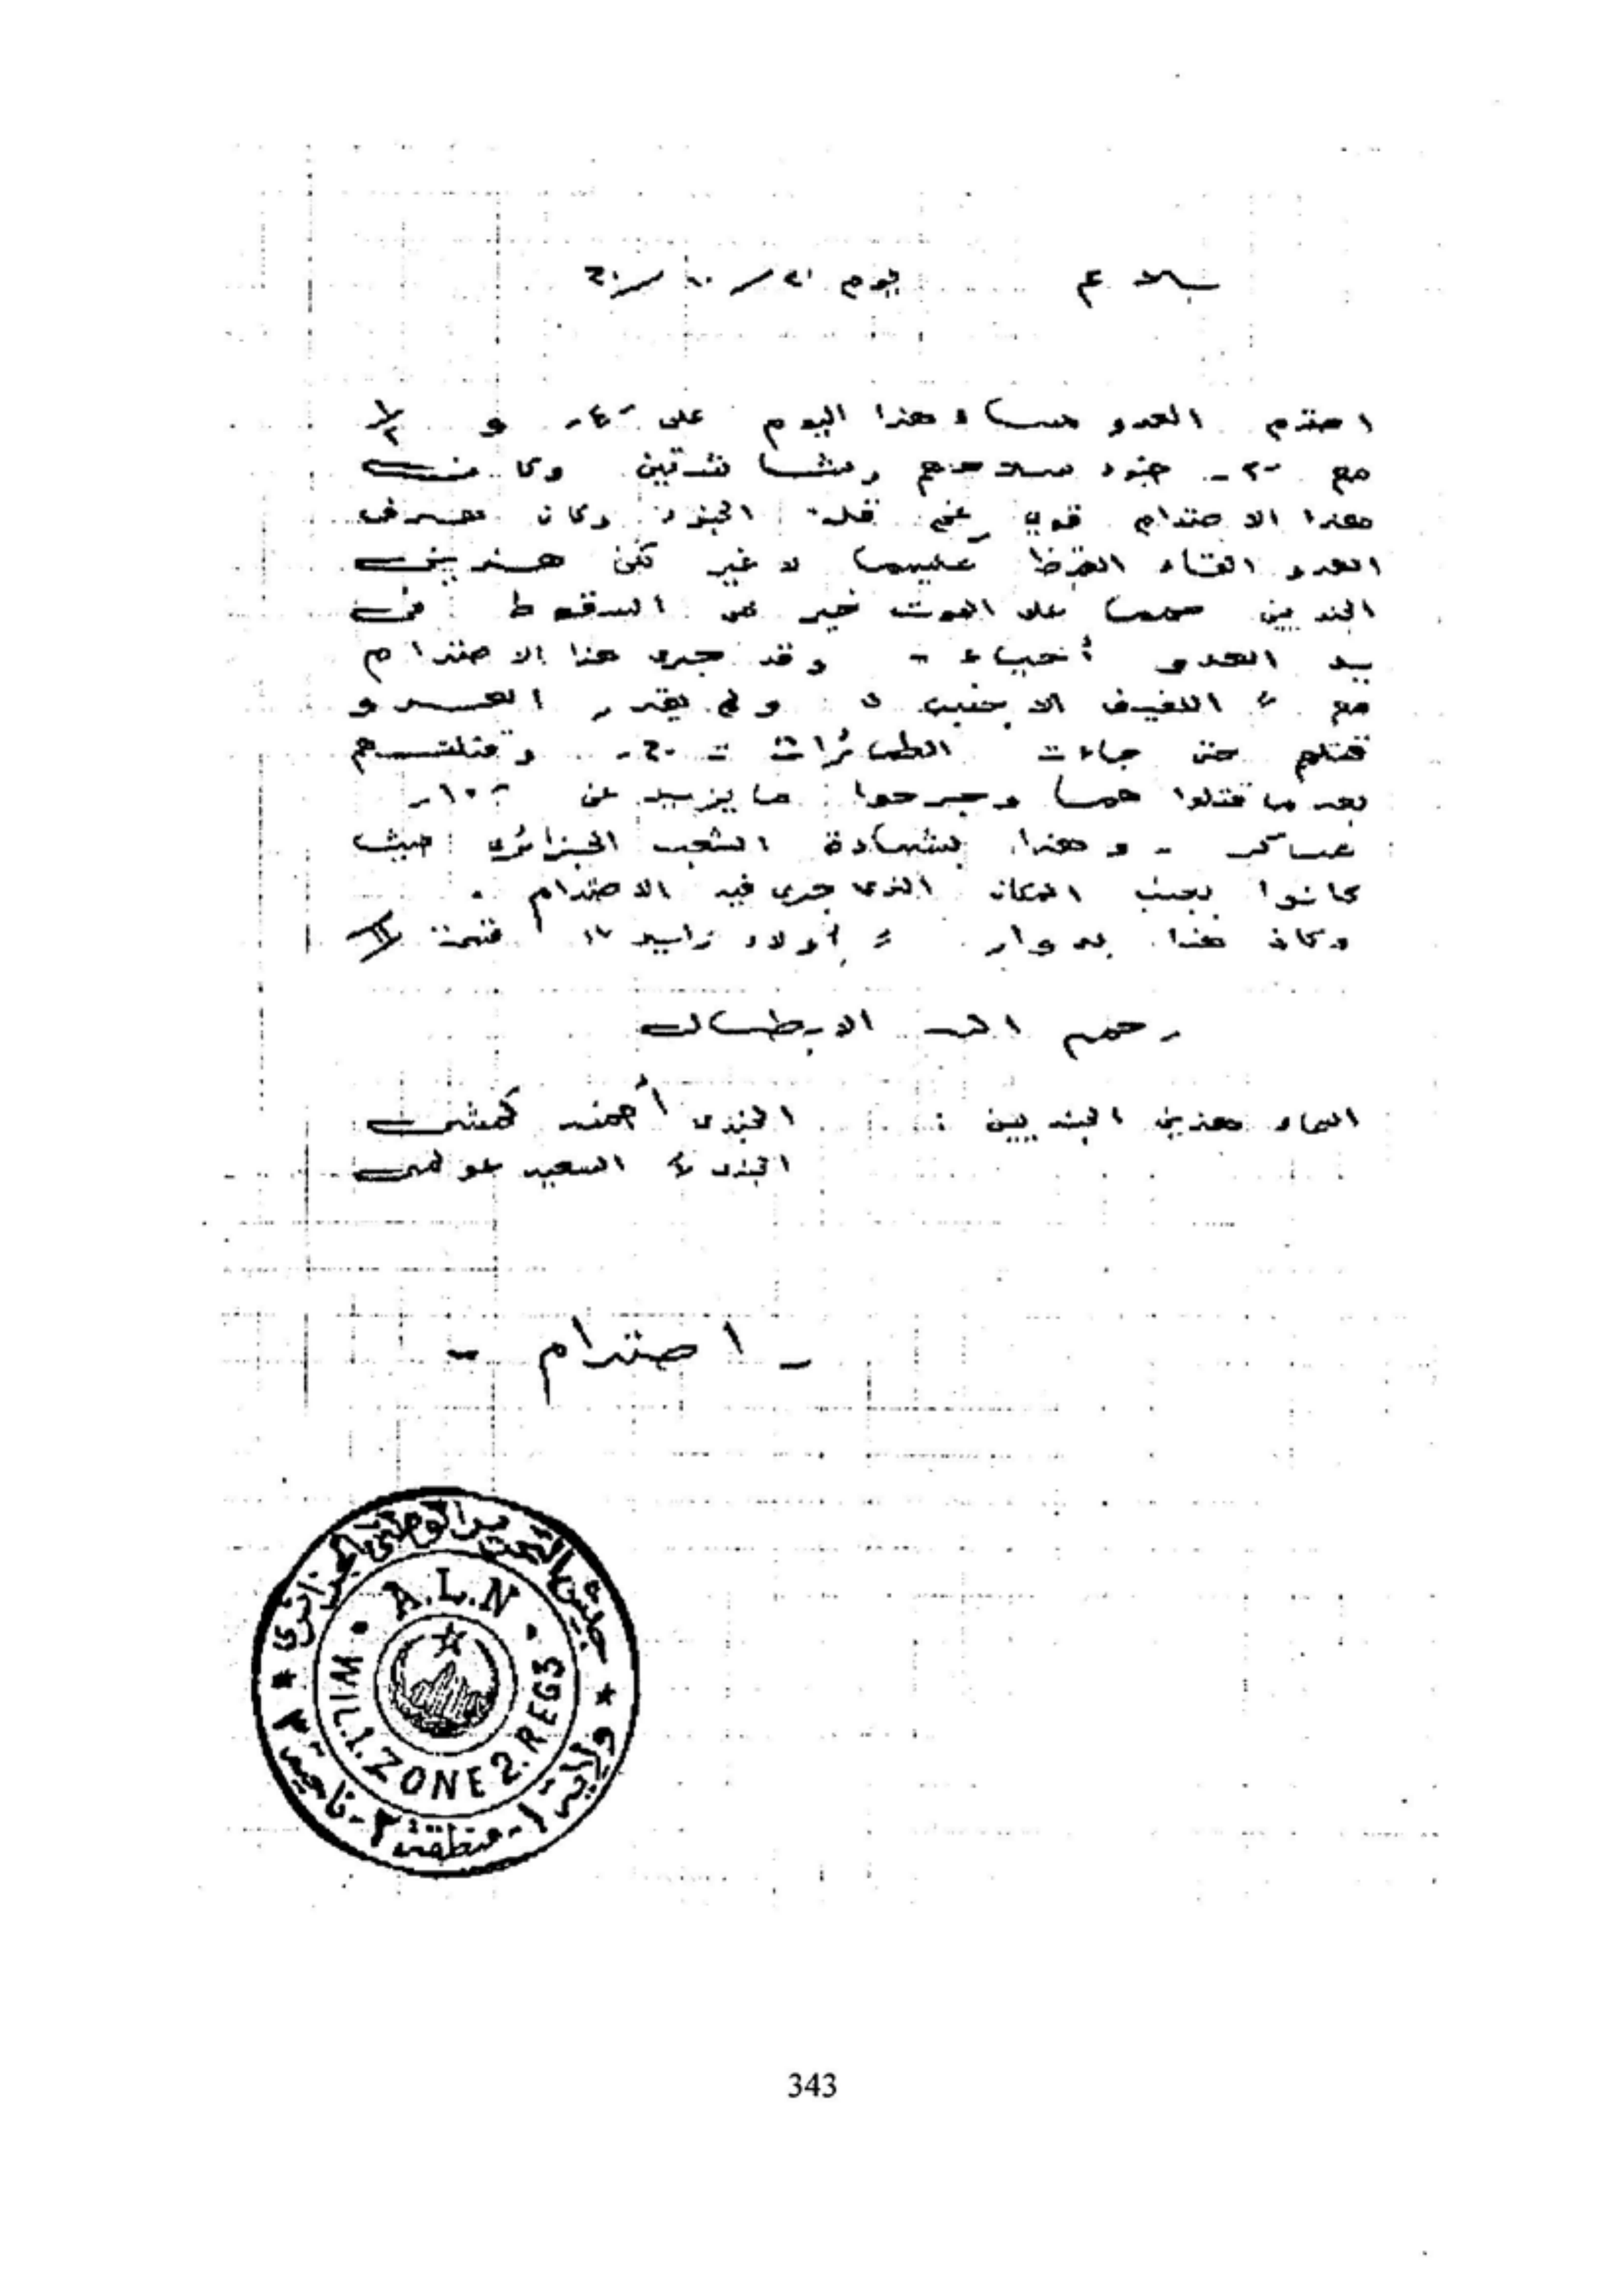 بلاغ يوم
اصتدم العدو مساء هذا اليوم على -٤- و ١/٢
مع -٢- جنود سلاحهم رشاشتين وكان
هذا الاصتدام قوي رغم قلة الجنود وكان هدف
العدو القاء القبض عليهما لا غير لكن هذين
الجنديين صمما على الموت خير من السقوط في
يد العدو أحياء - وقد جرى هذا الاصتدام
مع " اللفيف الاجنبي " ولم يقدر العدو
قتلهم حتى جاءت الطائرات وقتلتهم
بعد ما قتلوا وجرحوا ما يزيد عن
عساكر - وهذا بشهادة الشعب الجزائري حيث
كانوا بجنب المكان الذي جرى فيه الاصتدام .
وكان هذا بدوار " أولاد "
رحم الله الابطال
اسماء هذين الجنديين : الجندي أحمد
الجندي السعيد
- اصتدام -
جيش التحرير الوطني الجزائري
A.L.N
WIL.1.ZONE 2.REG3
ولاية ١ - منطقة ٢ - ناحية ٣
343